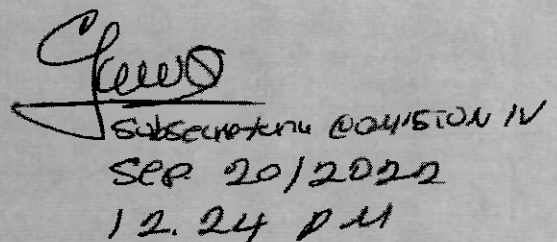 Subsecretaria Comision IV
Sep. 20/2022
12.24 PM